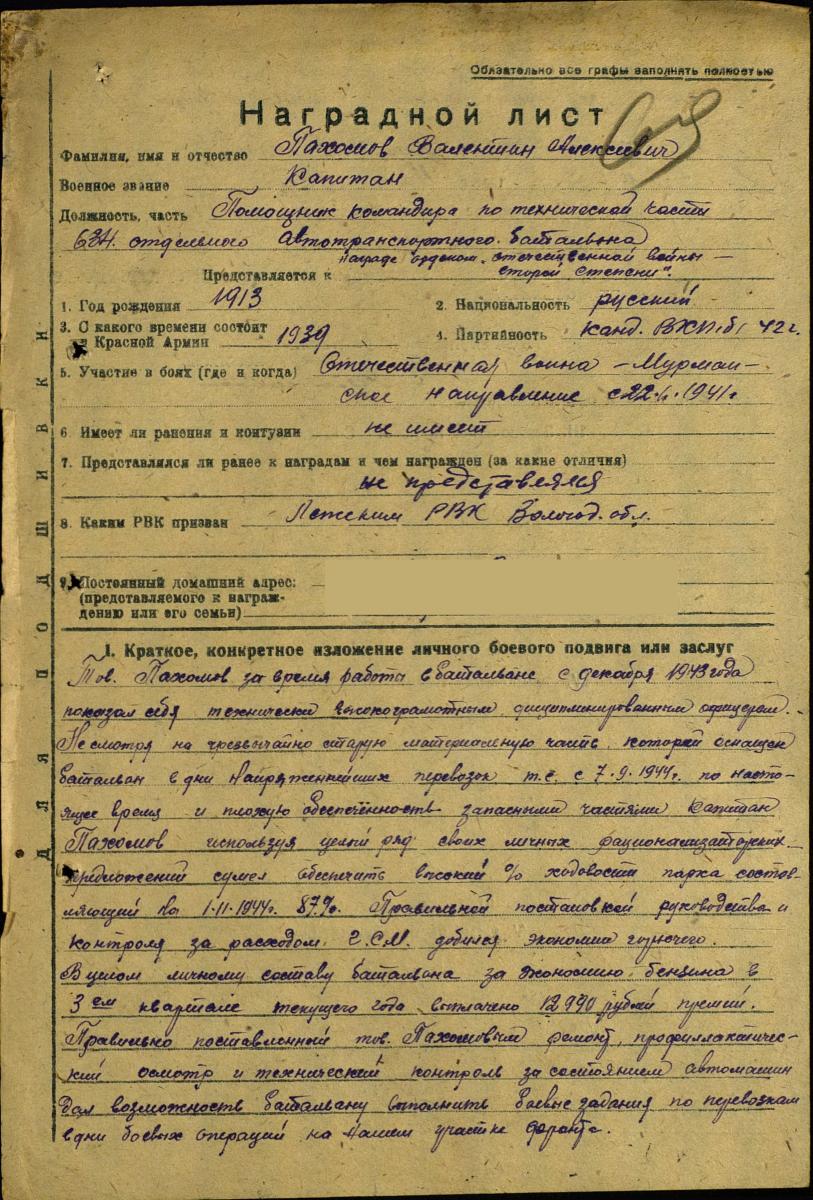 Обязательно все графы заполнять полностью
Наградной лист
Фамилия, имя и отчество Пахомов Валентин Алексеевич
Военное звание Капитан
Должность, часть Помощник командира по технической части
634 отдельного Автотранспортного батальона
Представляется к награде "орденом отечественной войны —
второй степени".
1. Год рождения 1913
2. Национальность русский
3. С какого времени состоит
в Красной Армии 1939
4. Партийность канд. ВКП(б) 42 г.
5. Участие в боях (где и когда) Отечественная война — Мурман-
ское направление с 22.6.1941г
6 Имеет ли ранения и контузии не имеет
7. Представлялся ли ранее к наградам и чем награжден (за какие отличия)
не представлялся
8. Каким РВК призван РВК Вологод. обл.
9. Постоянный домашний адрес:
(представляемого к награж-
дению или его семьи)
ДЛЯ ПОДШИВКИ
I. Краткое, конкретное изложение личного боевого подвига или заслуг
Тов. Пахомов за время работа в батальване с декабря 1943 года
показал себя технически высокограмотным дисциплинированным офицером.
Не смотря на чрезвычайно старую материальную часть, которой оснащен
батальван в дни напряженнейших перевозок т.е. с 7.9.1944г. по насто-
ящее время и плохую обеспеченность запасными частями капитан
Пахомов используя целый ряд своих личных рационализаторских
предложений сумел обеспечить высокий % ходовости парка состов-
ляющий на 1.11.1944г. 87%. Правильной постановкой руководства и
контроля за расходом Г.С.М. добился экономии горючего.
В целом личному составу батальвана за экономию бензина в
3ем квартале текущего года выплачено 12990 рублей премии.
Правильно поставленной тов. Пахомовым ремонт, профиллактичес-
кий осмотр и технический контроль за состоянием автомашин
дал возможность батальвану выполнить боевые задания по перевозкам
в дни боевых операций на нашем участке фронта.